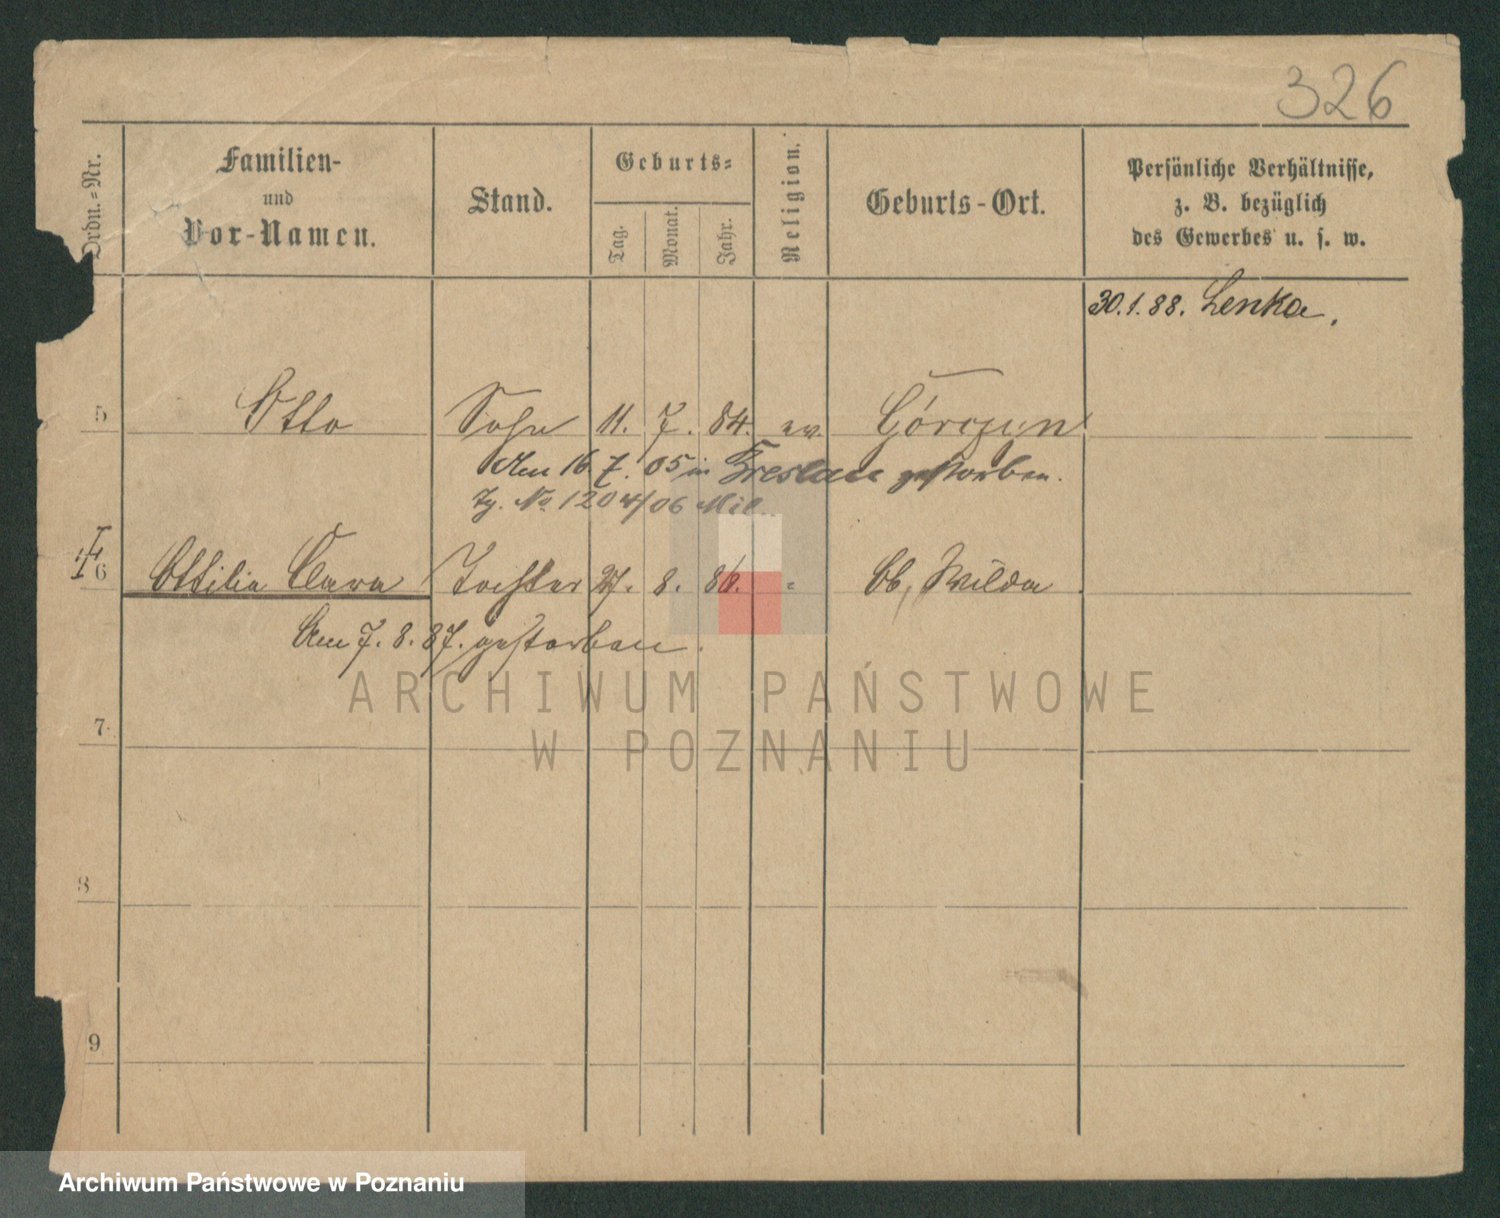 326
Ordn.-Nr.
Familien-
und
Vor-Namen.
Stand.
Geburts-
Tag.
Monat.
Jahr.
Religion.
Geburts-Ort.
Persönliche Verhältnisse,
z. B. bezüglich
des Gewerbes u. s. w.
30.1.88. Lenka.
5 Otto Sohn 11. 7. 84. ev. Górczyn
Am 16 7. 05 in Breslau gestorben.
Tg. No. 1204/06 Mil.
6 Ottilia Clara Tochter 27. 8. 86. " Ob, Wilda
Am 7. 8. 87. gestorben.
7.
8
9
ARCHIWUM PAŃSTWOWE
W POZNANIU
Archiwum Państwowe w Poznaniu